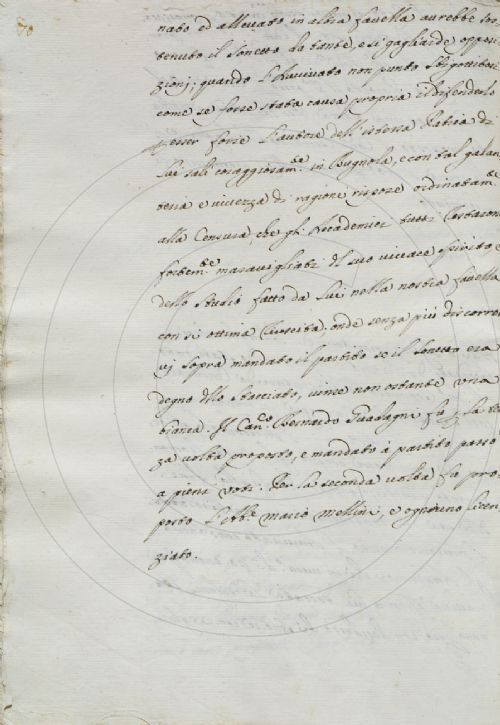 70
nato ed allevato in altra favella avrebbe
tenuto il Sonetto da tante, e si gagliarde oppo
zioni; quando l'Avvivato non punto sbigottitosi
come se fosse stata causa propria il difenderlo
esser forse l'autore dell'istessa Patria di
lui salì coraggiosam.te in Bugnola, e con tal galan
teria e vivezza di ragione rispose ordinatam.te
alla Censura che gl'Accademici tutti restarono
fortem.te maravigliati del suo vivace spirito, e
dello studio fatto da lui nella nostra favella
con sì ottima riuscita. onde senza più discorrer
vi sopra mandato il partito se il Sonetto era
degno dello Stacciato, vinse non ostante una
bianca. Il Can.co Bernardo Guadagni fu la
za volta proposto, e mandato à partito passò
a pieni voti. Per la seconda volta fu pro
posto l'Abb.e Mario Mellini, e ogniuno licen
ziato.